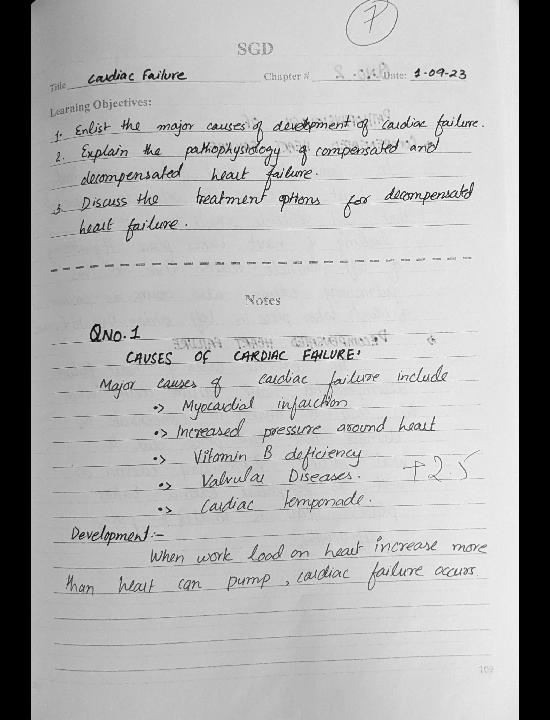 7
SGD
Title Cardiac Failure Chapter # Date: 1-09-23
Learning Objectives:
1. Enlist the major causes of development of cardiac failure.
2. Explain the pathophysiology of compensated and
decompensated heart failure.
3. Discuss the treatment options for decompensated
heart failure.
Notes
QNO.1
CAUSES OF CARDIAC FAILURE:
Major causes of cardiac failure include
•> Myocardial infarction
•> Increased pressure around heart
•> Vitamin B deficiency
•> Valvular Diseases.
+2.5
•> Cardiac temponade.
Development:-
When work load on heart increase more
than heart can pump, cardiac failure occurs.
109